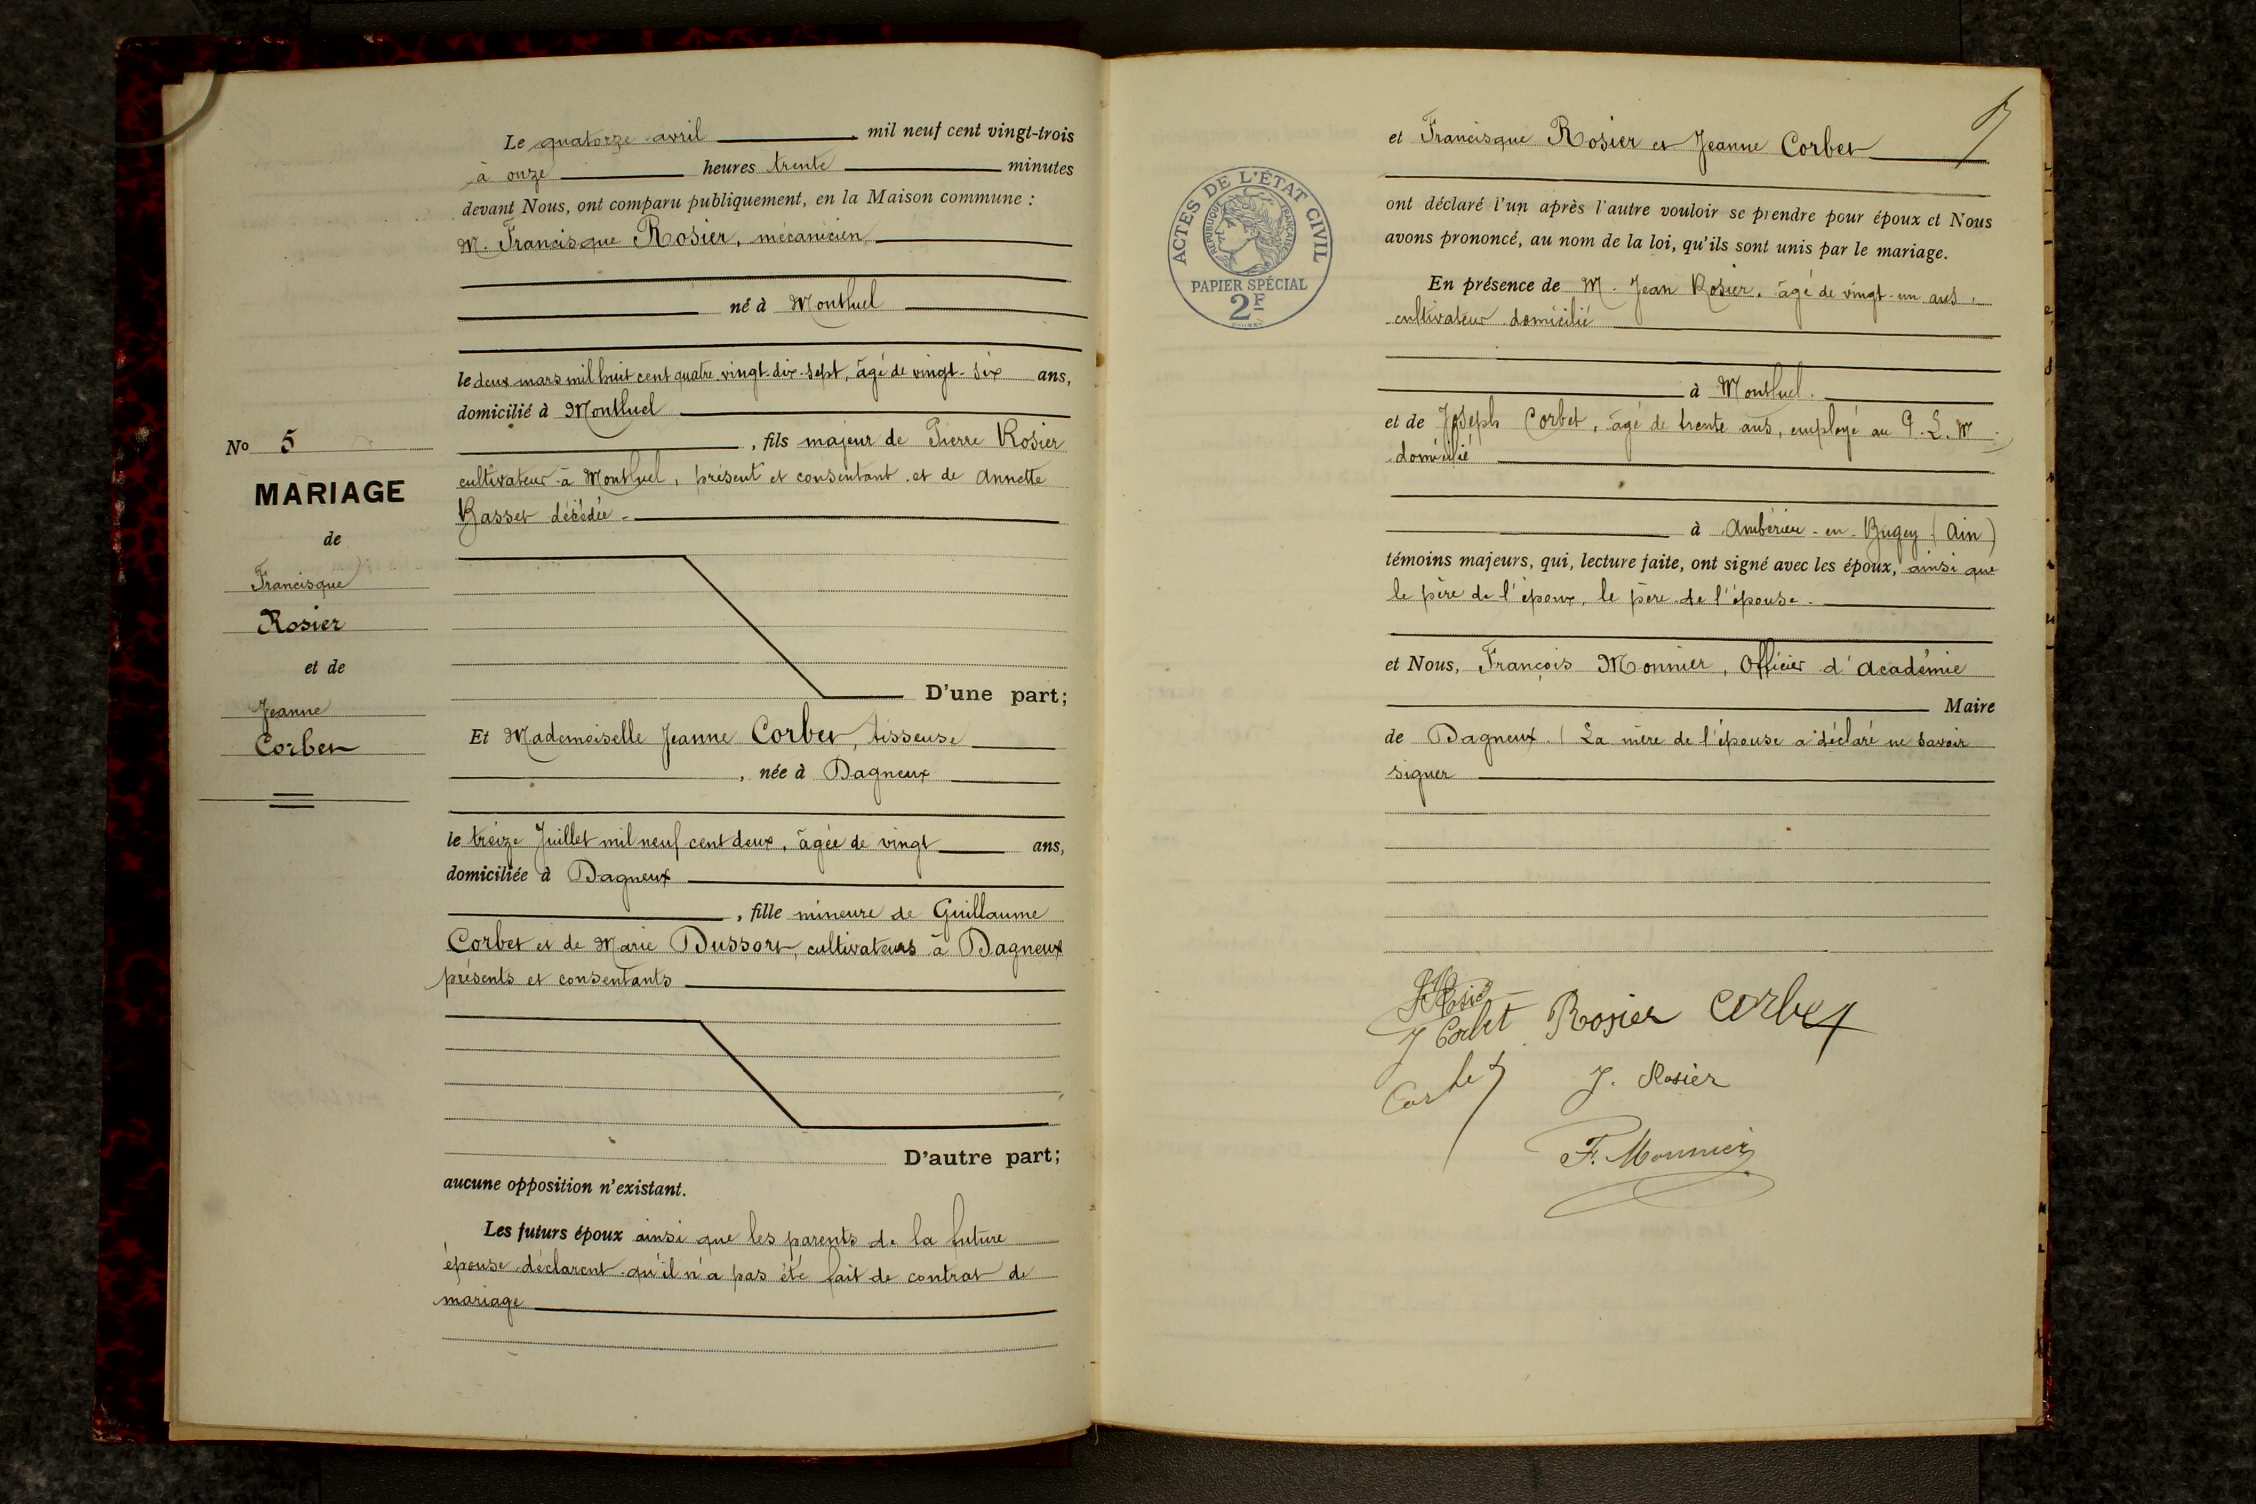 Le quatorze avril mil neuf cent vingt-trois
à onze heures trente minutes
devant Nous, ont comparu publiquement, en la Maison commune :
M. Francisque Rosier, mécanicien,
né à Montluel
le deux mars mil huit cent quatre vingt-dix-sept, âgé de vingt-six ans,
domicilié à Montluel
, fils majeur de Pierre Rosier
cultivateur à Montluel, présent et consentant et de Annette
Basset décédée
D'une part;
Et Mademoiselle Jeanne Corbet, tisseuse
, née à Dagneux
le treize Juillet mil neuf cent deux, âgée de vingt ans,
domiciliée à Dagneux
, fille mineure de Guillaume
Corbet et de Marie Dussort, cultivateurs à Dagneux
présents et consentants
D'autre part;
aucune opposition n'existant.
Les futurs époux ainsi que les parents de la future
épouse déclarent qu'il n'a pas été fait de contrat de
mariage
No 5
MARIAGE
de
Francisque
Rosier
et de
Jeanne
Corbet
et Francisque Rosier et Jeanne Corbet
ACTES DE L'ÉTAT CIVIL
RÉPUBLIQUE FRANÇAISE
PAPIER SPÉCIAL
2F
ont déclaré l'un après l'autre vouloir se prendre pour époux et Nous
avons prononcé, au nom de la loi, qu'ils sont unis par le mariage.
En présence de M. Jean Rosier, âgé de vingt-un ans,
cultivateur domicilié
à Montluel.
et de Joseph Corbet, âgé de trente ans, employé au P.L.M.
domicilié
à Ambérieu-en-Bugey (Ain)
témoins majeurs, qui, lecture faite, ont signé avec les époux, ainsi que
le père de l'époux, le père de l'épouse.
et Nous, François Monnier, Officier d'Académie
Maire
de Dagneux. / La mère de l'épouse a déclaré ne savoir
signer
J Corbet Rosier Corbet
Corbet J. Rosier
F. Monnier